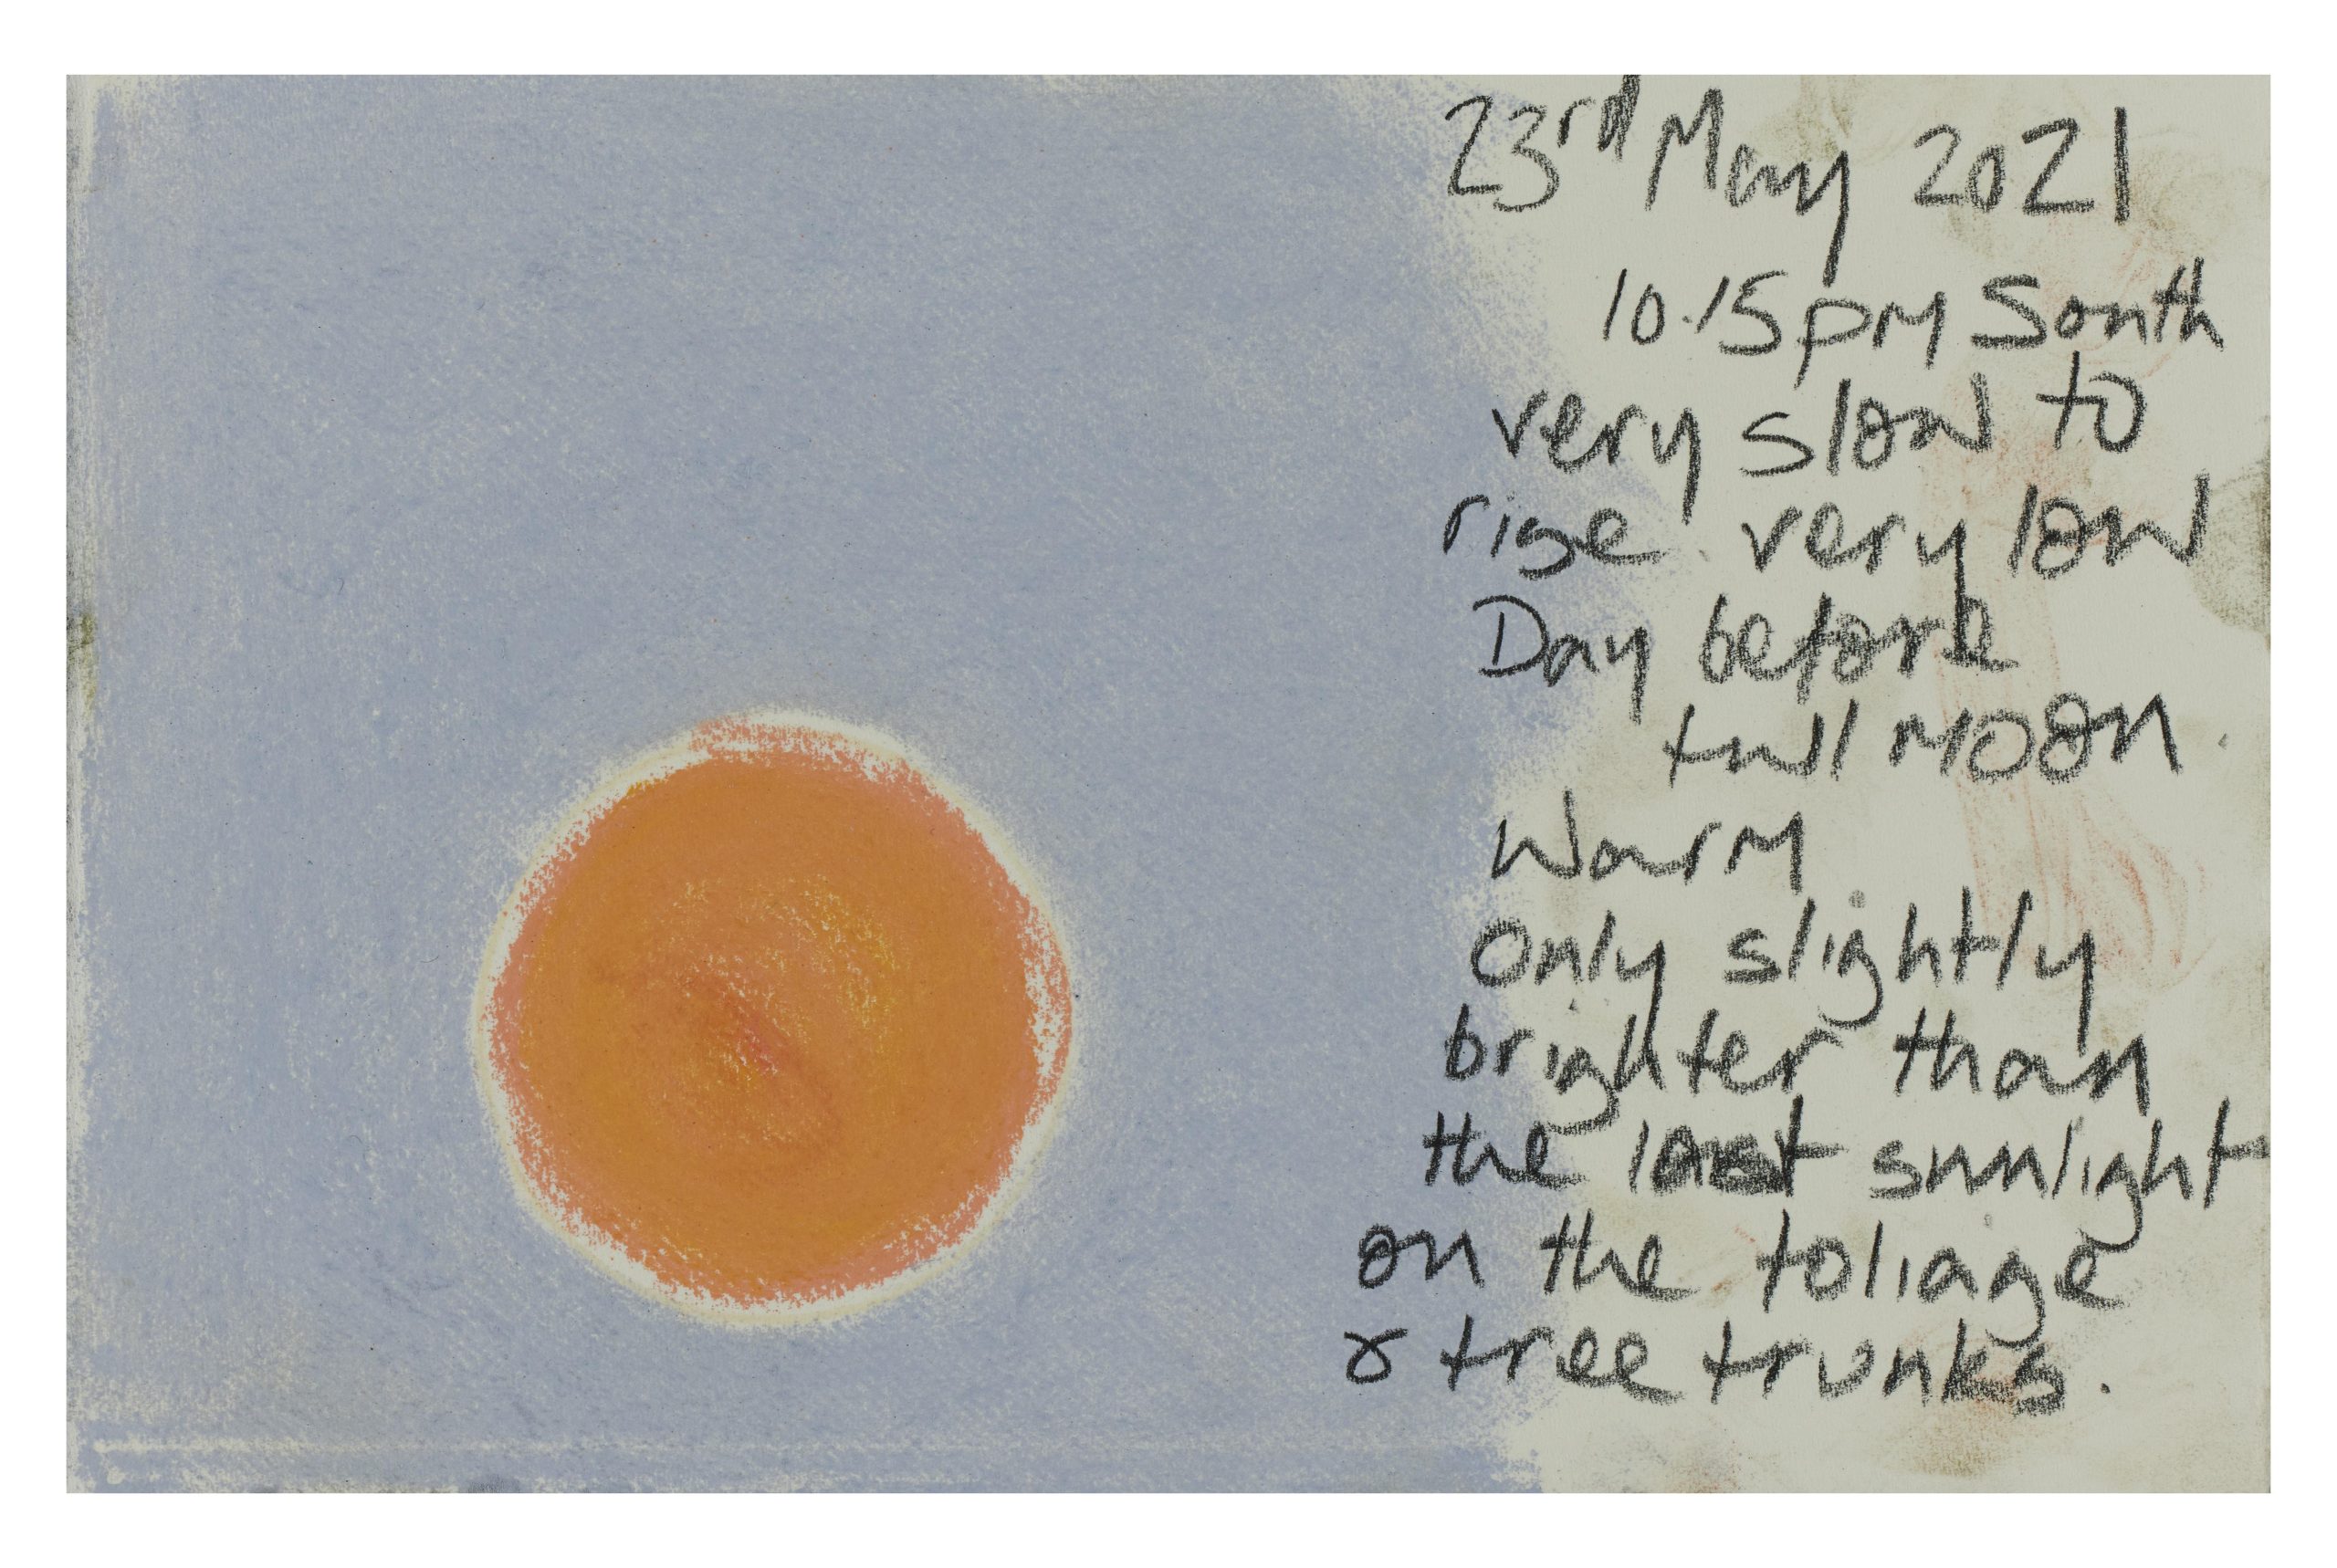 23rd May 2021
10.15pm South
very slow to
rise. very low
Day before
full Moon.
Warm
Only slightly
brighter than
the last sunlight
on the foliage
& tree trunks.